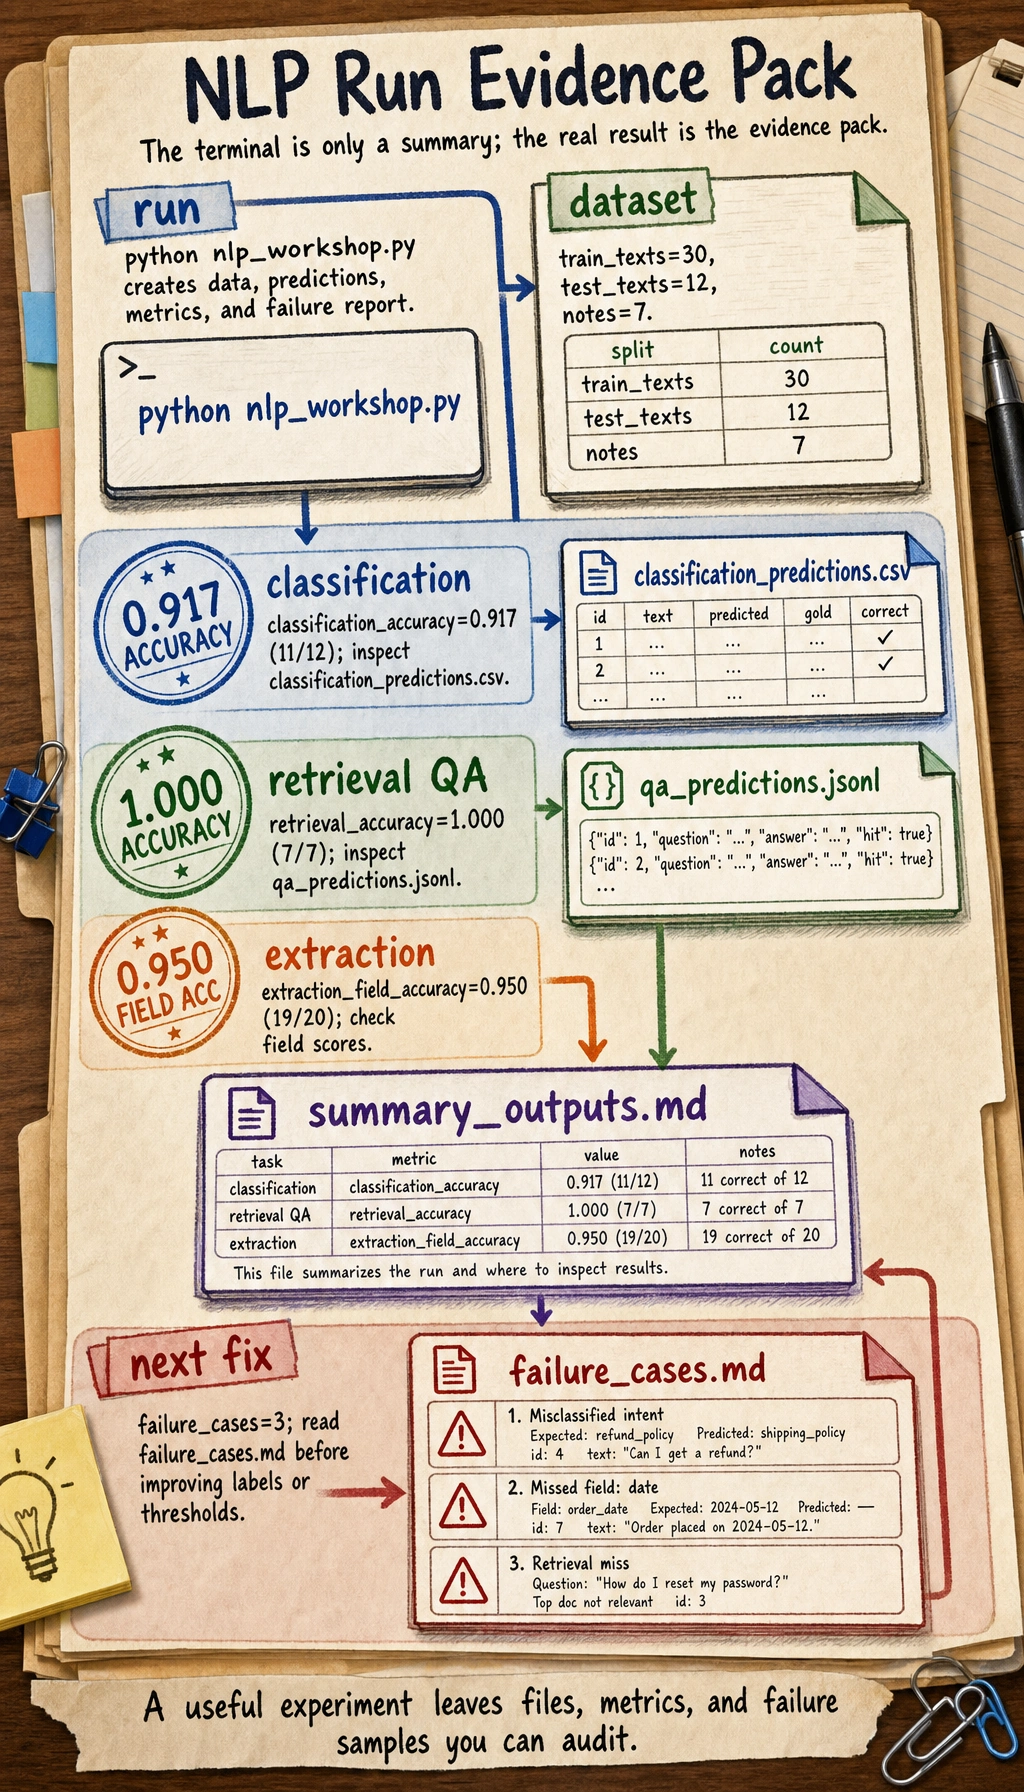 NLP Run Evidence Pack
The terminal is only a summary; the real result is the evidence pack.
run
python nlp_workshop.py
creates data, predictions,
metrics, and failure report.
>_
python nlp_workshop.py
dataset
train_texts=30,
test_texts=12,
notes=7.
split count
train_texts 30
test_texts 12
notes 7
0.917
ACCURACY
classification
classification_accuracy=0.917
(11/12); inspect
classification_predictions.csv.
classification_predictions.csv
id text predicted gold correct
1 ... ... ... ✓
2 ... ... ... ✓
... ... ... ...
1.000
ACCURACY
retrieval QA
retrieval_accuracy=1.000
(7/7); inspect
qa_predictions.jsonl.
{} qa_predictions.jsonl
{"id": 1, "question": "...", "answer": "...", "hit": true}
{"id": 2, "question": "...", "answer": "...", "hit": true}
...
0.950
FIELD ACC
extraction
extraction_field_accuracy=0.950
(19/20); check
field scores.
summary_outputs.md
task metric value notes
classification classification_accuracy 0.917 (11/12) 11 correct of 12
retrieval QA retrieval_accuracy 1.000 (7/7) 7 correct of 7
extraction extraction_field_accuracy 0.950 (19/20) 19 correct of 20
This file summarizes the run and where to inspect results.
next fix
failure_cases=3; read
failure_cases.md before
improving labels or
thresholds.
failure_cases.md
1. Misclassified intent
Expected: refund_policy Predicted: shipping_policy
id: 4 text: "Can I get a refund?"
2. Missed field: date
Field: order_date Expected: 2024-05-12 Predicted: —
id: 7 text: "Order placed on 2024-05-12."
3. Retrieval miss
Question: "How do I reset my password?"
Top doc not relevant id: 3
A useful experiment leaves files, metrics, and failure
samples you can audit.